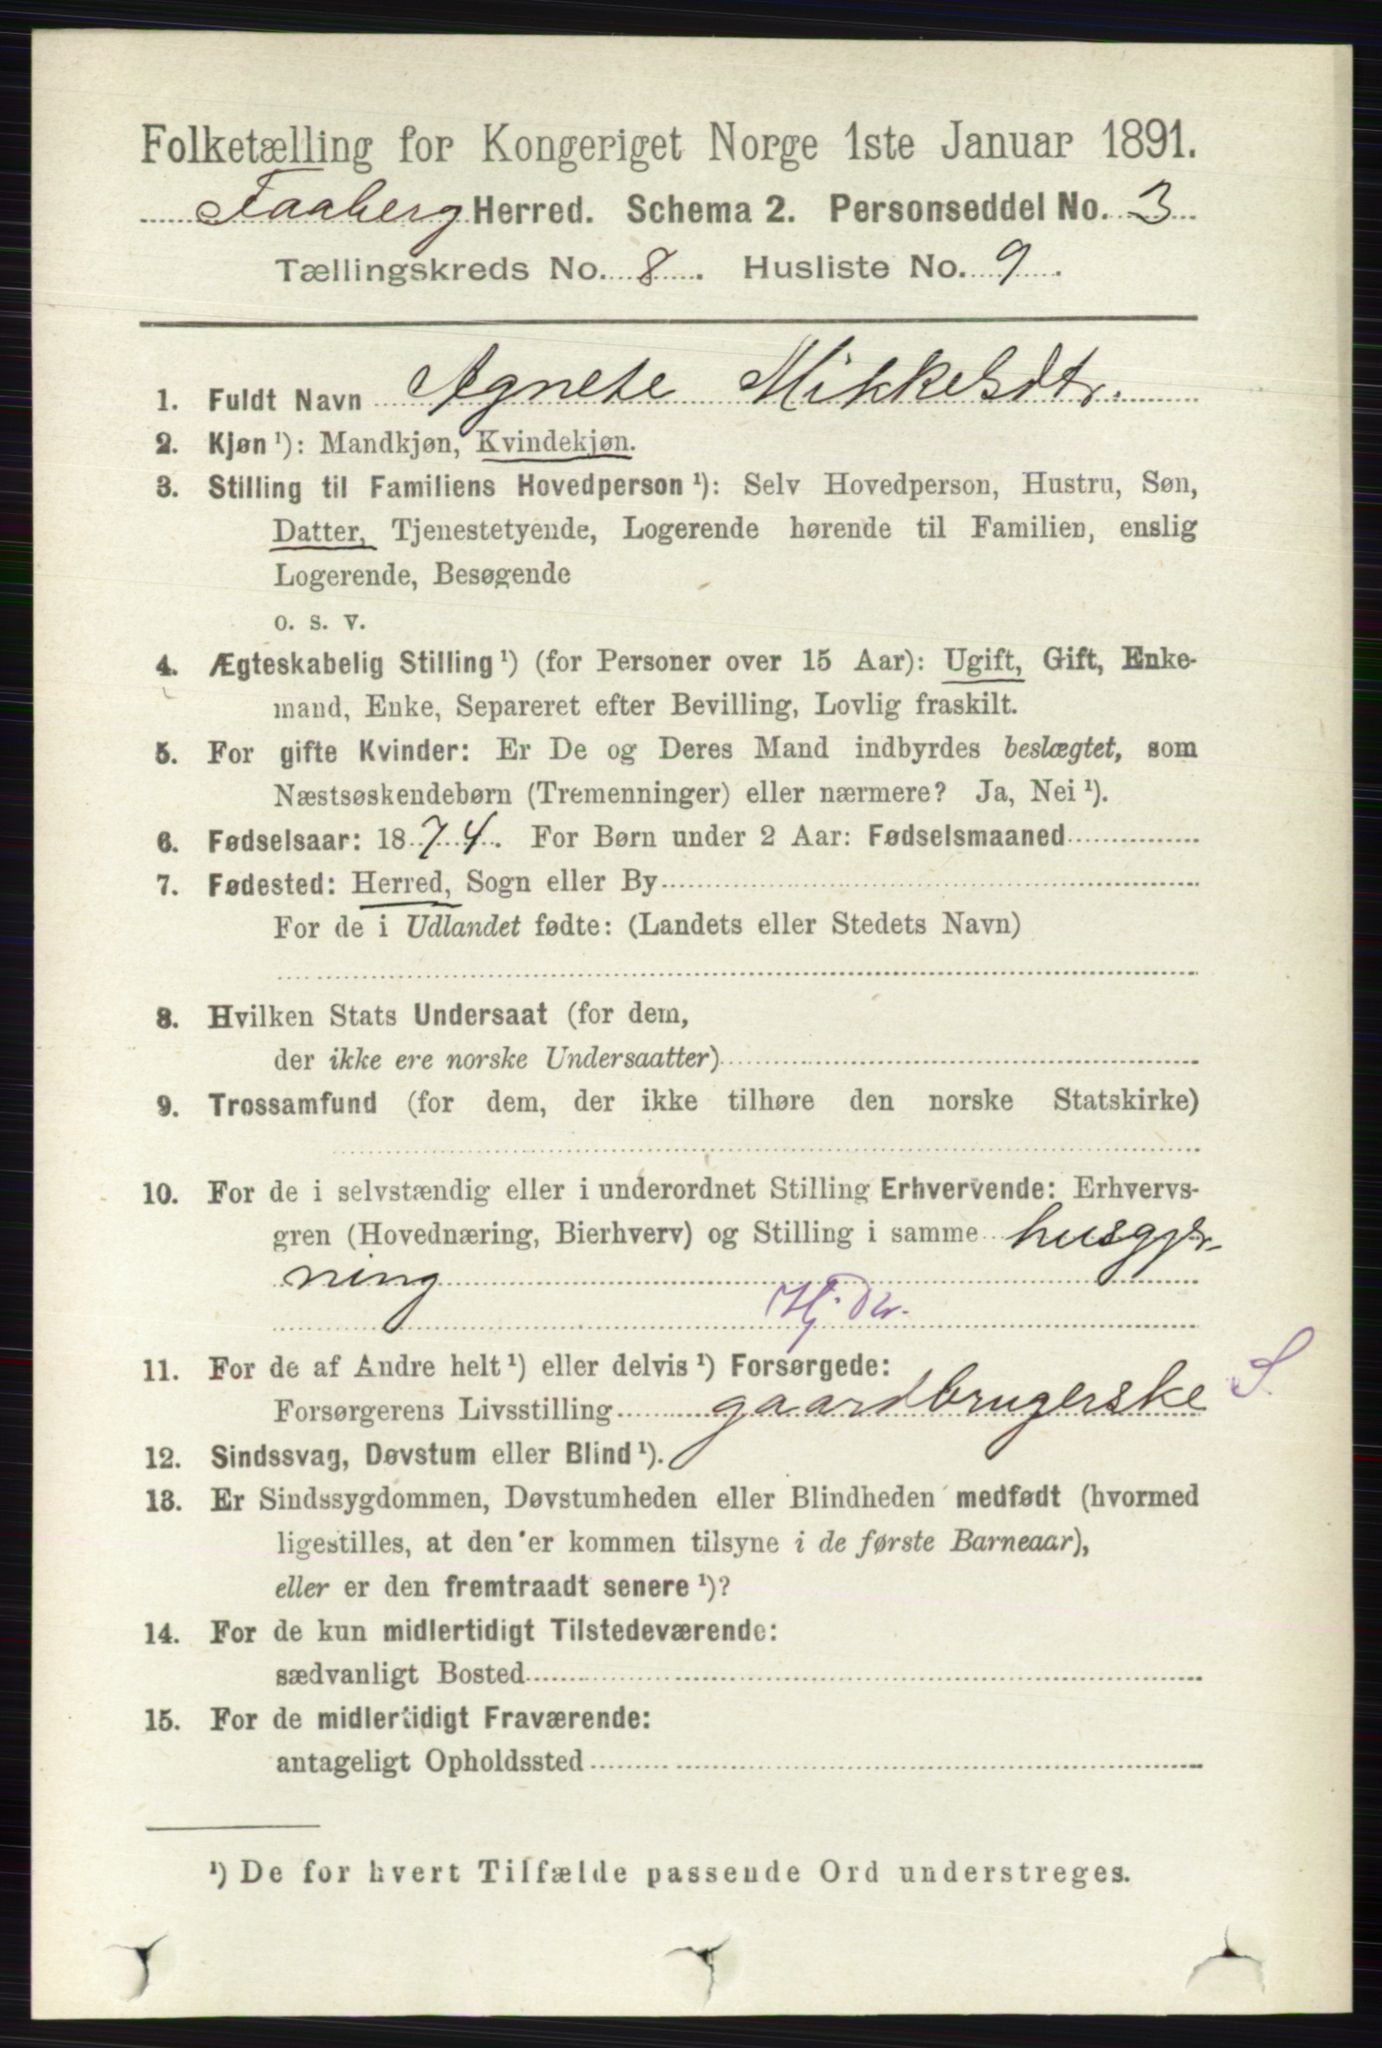 Folketælling for Kongeriget Norge 1ste Januar 1891.
Faaberg Herred. Schema 2. Personseddel No. 3
Tællingskreds No. 8. Husliste No. 9.
1. Fuldt Navn Agnete Mikkelsdtr.
2. Kjøn ¹): Mandkjøn, Kvindekjøn.
3. Stilling til Familiens Hovedperson ¹): Selv Hovedperson, Hustru, Søn,
Datter, Tjenestetyende, Logerende hørende til Familien, enslig
Logerende, Besøgende
o. s. v.
4. Ægteskabelig Stilling ¹) (for Personer over 15 Aar): Ugift, Gift, Enke-
mand, Enke, Separeret efter Bevilling, Lovlig fraskilt.
5. For gifte Kvinder: Er De og Deres Mand indbyrdes beslægtet, som
Næstsøskendebørn (Tremenninger) eller nærmere? Ja, Nei ¹).
6. Fødselsaar: 1874. For Børn under 2 Aar: Fødselsmaaned
7. Fødested: Herred, Sogn eller By
For de i Udlandet fødte: (Landets eller Stedets Navn)
8. Hvilken Stats Undersaat (for dem,
der ikke ere norske Undersaatter)
9. Trossamfund (for dem, der ikke tilhøre den norske Statskirke)
10. For de i selvstændig eller i underordnet Stilling Erhvervende: Erhvervs-
gren (Hovednæring, Bierhverv) og Stilling i samme husgjer-
ning
Hj. Dtr.
11. For de af Andre helt ¹) eller delvis ¹) Forsørgede:
Forsørgerens Livsstilling gaardbrugerske S.
12. Sindssvag, Døvstum eller Blind ¹).
13. Er Sindssygdommen, Døvstumheden eller Blindheden medfødt (hvormed
ligestilles, at den er kommen tilsyne i de første Barneaar),
eller er den fremtraadt senere ¹)?
14. For de kun midlertidigt Tilstedeværende:
sædvanligt Bosted
15. For de midlertidigt Fraværende:
antageligt Opholdssted
¹) De for hvert Tilfælde passende Ord understreges.